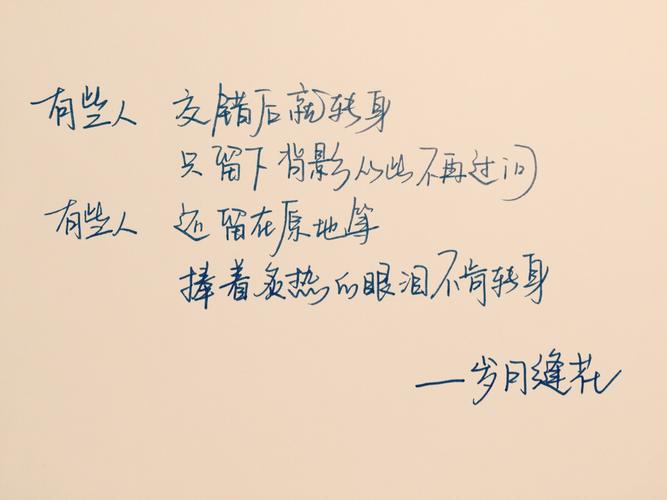 有些人 交错后就转身
只留下背影从此不再过问
有些人 还留在原地等
捧着炙热的眼泪不肯转身
—岁月缝花